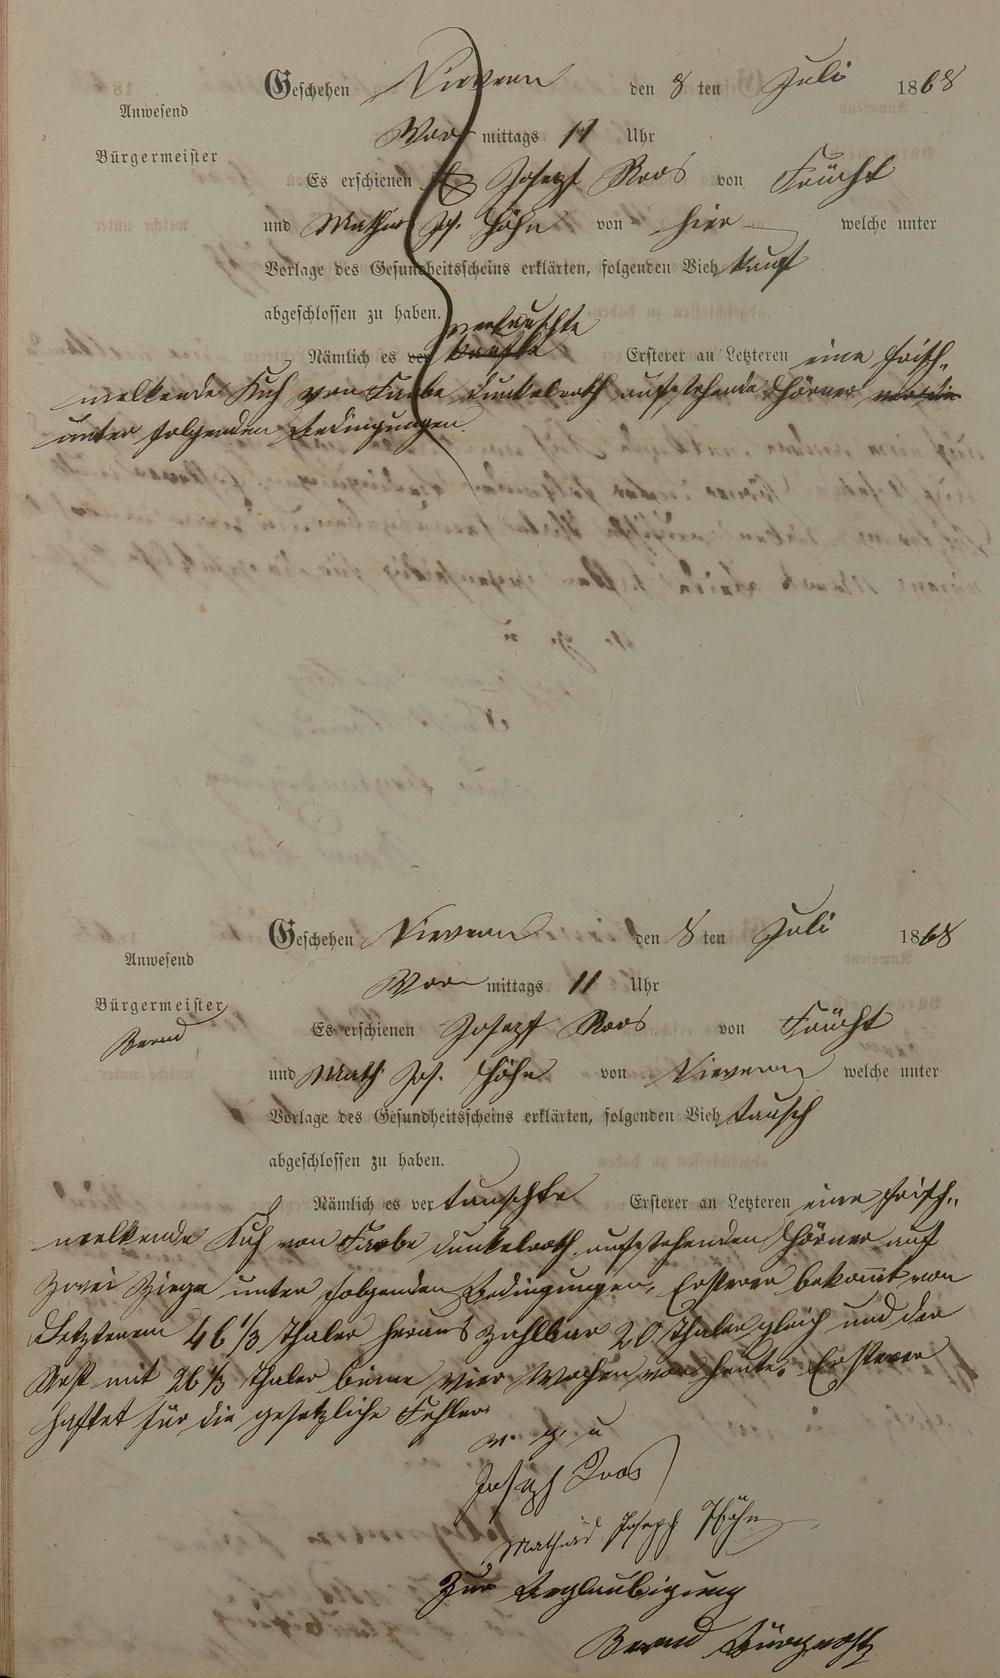 Geschehen Nievern den 8 ten Juli 1868
Anwesend
Vor mittags 11 Uhr
Bürgermeister
Es erschienen Josepf Roos von Frücht
und Mathias Jos. Höhn von hier welche unter
Vorlage des Gesundheitsscheins erklärten, folgenden Vieh kauf
abgeschlossen zu haben.
vertauschte
Nämlich es ver kaufte Ersterer an Letzteren eine frisch„
melkende Kuh von Farbe dunkelroth aufstehende Hörner
unter folgenden Bedingungen.
Geschehen Nievern den 8 ten Juli 1868
Anwesend
Vor mittags 11 Uhr
Bürgermeister
Bernd
Es erschienen Josepf Roos von Frücht
und Math. Jos. Höhn von Nievern welche unter
Vorlage des Gesundheitsscheins erklärten, folgenden Vieh tausch
abgeschlossen zu haben.
Nämlich es ver tauschte Ersterer an Letzteren eine frisch„
melkende Kuh von Farbe dunkelroth aufstehenden Hörner auf
zwei Ziege unter folgenden Bedingungen, Ersterer bekomt von
Letzterem 46 1/3 Thaler heraus zahlbar 20 Thaler gleich und der
Rest mit 26 1/3 Thaler binne vier Wochen von heute. Ersterer
haftet für die gesetzliche Fehler
v. g. u
Joseph Roos
Mathias Joseph Höhn
Zur Beglaubigung
Bernd Bürgermstr